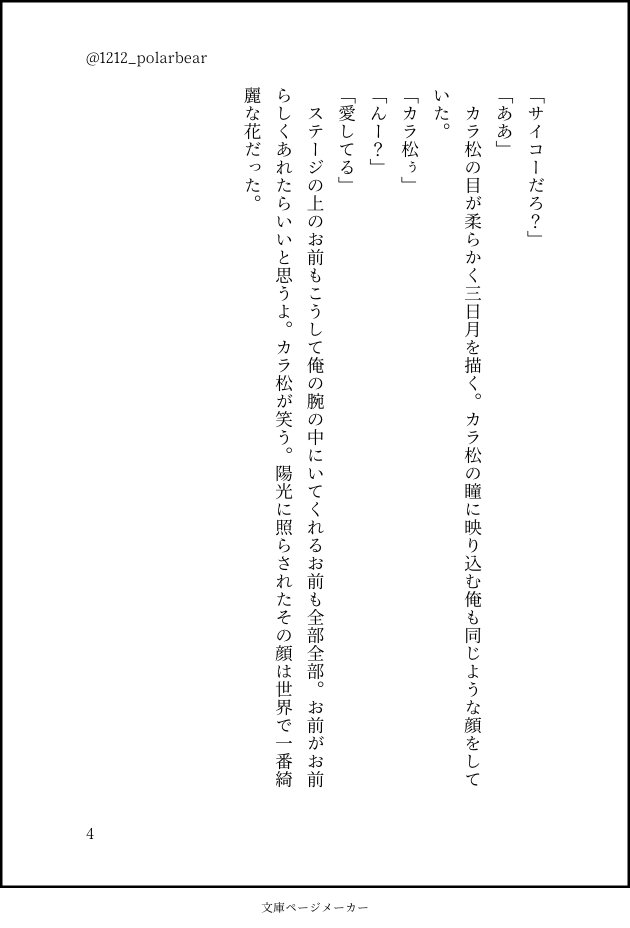 @1212_polarbear
「サイコーだろ？」
「ああ」
　カラ松の目が柔らかく三日月を描く。カラ松の瞳に映り込む俺も同じような顔をして
いた。
「カラ松ぅ」
「んー？」
「愛してる」
　ステージの上のお前もこうして俺の腕の中にいてくれるお前も全部全部。お前がお前
らしくあれたらいいと思うよ。カラ松が笑う。陽光に照らされたその顔は世界で一番綺
麗な花だった。
4
文庫ページメーカー